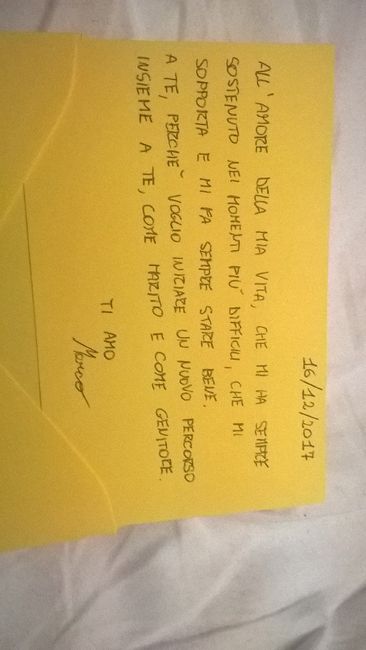 16/12/2017
ALL'AMORE DELLA MIA VITA, CHE MI HA SEMPRE
SOSTENUTO NEI MOMENTI PIÙ DIFFICILI, CHE MI
SOPPORTA E MI FA SEMPRE STARE BENE.
A TE, PERCHÈ VOGLIO INIZIARE UN NUOVO PERCORSO
INSIEME A TE, COME MARITO E COME GENITORE.
TI AMO
Marco